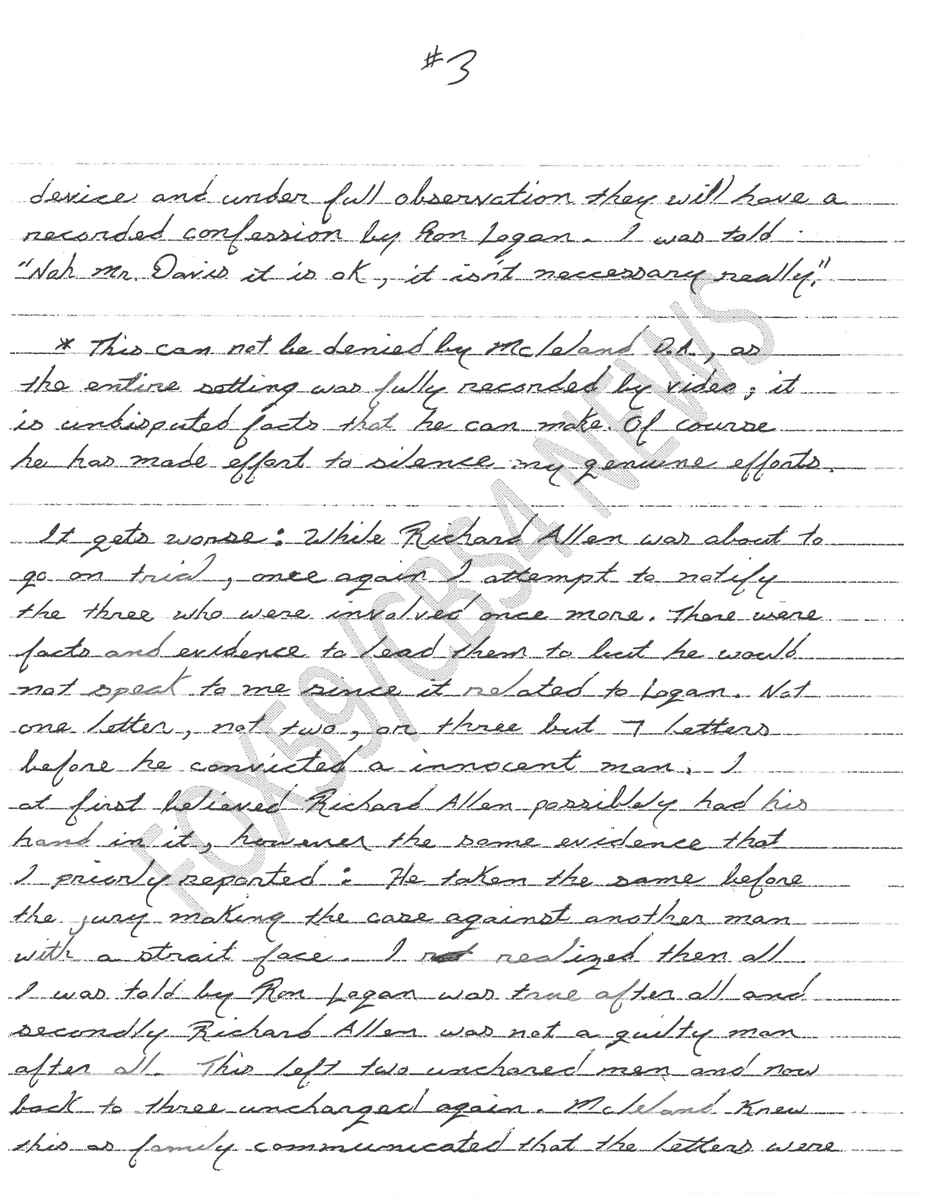 #3
device and under full observation they will have a
recorded confession by Ron Logan. I was told
"Nah Mr. Davis it is ok, it isn't neccessary really."
* This can not be denied by Mcleland D.A., as
the entire setting was fully recorded by video; it
is undisputed facts that he can make. Of course
he has made effort to silence my genuine efforts.
It gets worse: While Richard Allen was about to
go on trial, once again I attempt to notify
the three who were involved once more. There were
facts and evidence to lead them to but he would
not speak to me since it related to Logan. Not
one letter, not two, or three but 7 letters
before he convicted a innocent man. I
at first believed Richard Allen possibly had his
hand in it, however the same evidence that
I priorly reported: He taken the same before
the jury making the case against another man
with a strait face. I realized then all
I was told by Ron Logan was true after all and
secondly Richard Allen was not a guilty man
after all. This left two unchared men and now
back to three uncharged again. Mcleland Knew
this as family communicated that the letters were
FOX59/CBS4 NEWS